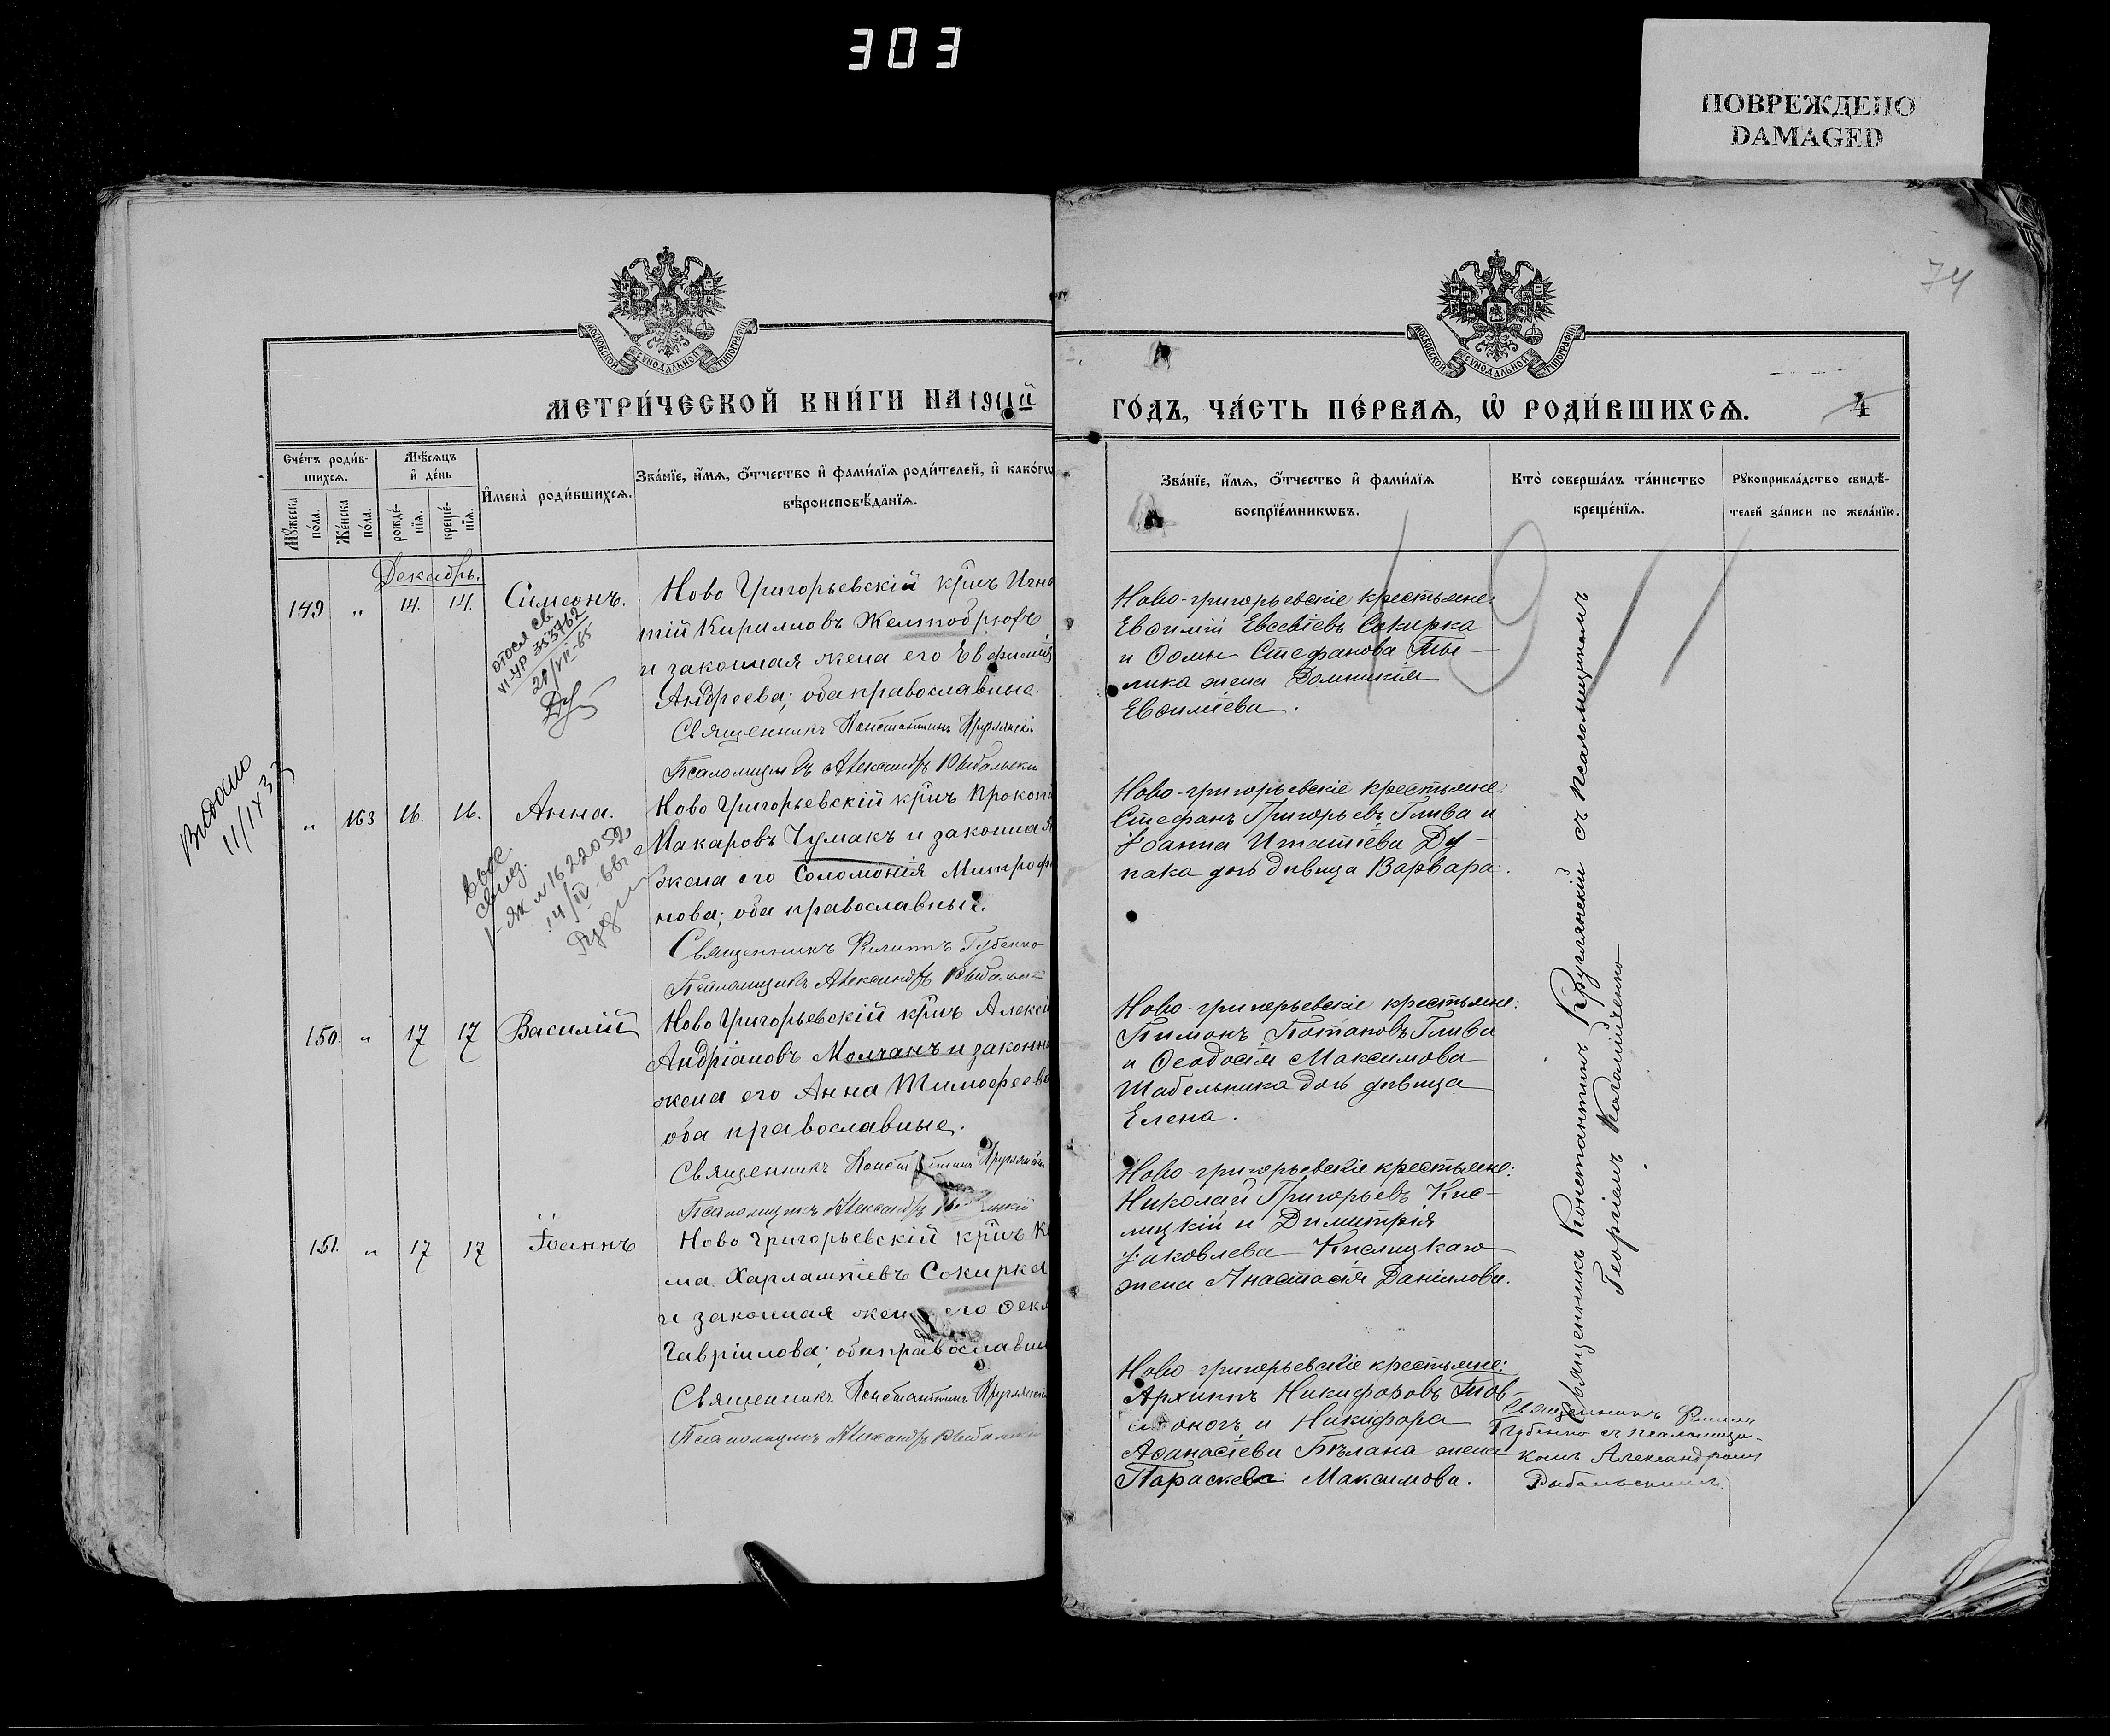 303
ПОВРЕЖДЕНО
DAMAGED
74
МОСКОВСКОЙ СУНОДАЛЬНОЙ ТИПОГРАФІИ
МОСКОВСКОЙ СУНОДАЛЬНОЙ ТИПОГРАФІИ
МЕТРИ́ЧЕСКОЙ КНИ́ГИ НА 1911й
ГО́ДЪ, ЧА́СТЬ ПЕ́РВАѦ, Ѡ҆ РОДИ́ВШИХСѦ.
4
Сче́тъ роди́в-
шихсѧ.
Мꙋ́жеска по́ла.
Же́нска по́ла.
Мѣ́сѧцъ
и҆ де́нь
рожде́-
нїѧ.
креще́-
нїѧ.
И҆мена̀ роди́вшихсѧ.
Зва́нїе, и҆́мѧ, ѻ҆́тчество и҆ фами́лїѧ роди́телей, и҆ како́гѡ
вѣроисповѣ́данїѧ.
Зва́нїе, и҆́мѧ, ѻ҆́тчество и҆ фами́лїѧ
воспрїе́мникѡвъ.
Кто̀ соверша́лъ та́инство
креще́нїѧ.
Рꙋкоприкла́дство свидѣ́-
телей за́писи по жела́нїю.
1911
Декабрь.
149 " 14. 14. Симеонъ.
VI-УР 353762
21/VII-65
Ново Григорьевскій кр-нъ Игна
тій Кириловъ Желтобрюхъ
и законная жена его Евфимія
Андреева; оба православные.
Священникъ Константинъ Круглянскій
Псаломщикъ Александръ Рыбальскій
Ново-григорьевскіе крестьяне:
Евѳимій Евсевіевъ Сокирка
и Ѳомы Стефанова Ты-
лика жена Домникія
Евѳиміева.
Видано
11/IX 33
" 163 16. 16. Анна.
выс.
свид.
I-ЯК № 1622052
14/IV-66г
Ново Григорьевскій кр-нъ Прокопі
Макаровъ Чумакъ и законная
жена его Соломонія Митроф
нова; оба православные.
Священникъ Филиппъ Губенко
Псаломщикъ Александръ Рыбальскій
Ново-григорьевскіе крестьяне:
Стефанъ Григорьевъ Глива и
Іоанна Игнатіева Ду-
пака дочь дѣвица Варвара.
150. " 17 17 Василій
Ново Григорьевскій кр-нъ Алексій
Андріановъ Молчанъ и законна
жена его Анна Тимофеева
оба православные.
Священникъ Константинъ Круглянскій
Псаломщикъ Александръ
Ново-григорьевскіе крестьяне:
Пимонъ Потаповъ Глива
и Ѳеодосія Максимова
Шабельника дочь дѣвица
Елена.
151. " 17 17 Іоаннъ
Ново Григорьевскій кр-нъ К
ма Харлампіевъ Сокирка
и законная жена его Ѳекл
Гавріилова; оба православны
Священникъ Константинъ Круглянскій
Псаломщикъ Александръ Рыбальскій
Ново-григорьевскіе крестьяне:
Николай Григорьевъ Кис-
лицкій и Димитрія
Іаковлева Кислицкаго
жена Анастасія Даніилова.
Ново григорьевскіе крестьяне:
Архиппъ Никифоровъ Тов-
стоногъ и Никифора
Аѳанасіева Бѣлана жена
Параскева Максимова.
Священникъ Константинъ Круглянскій съ псаломщикомъ
Георгіемъ Коломійченко
Священникъ Филиппъ
Губенко съ псаломщи-
комъ Александромъ
Рыбальскимъ.